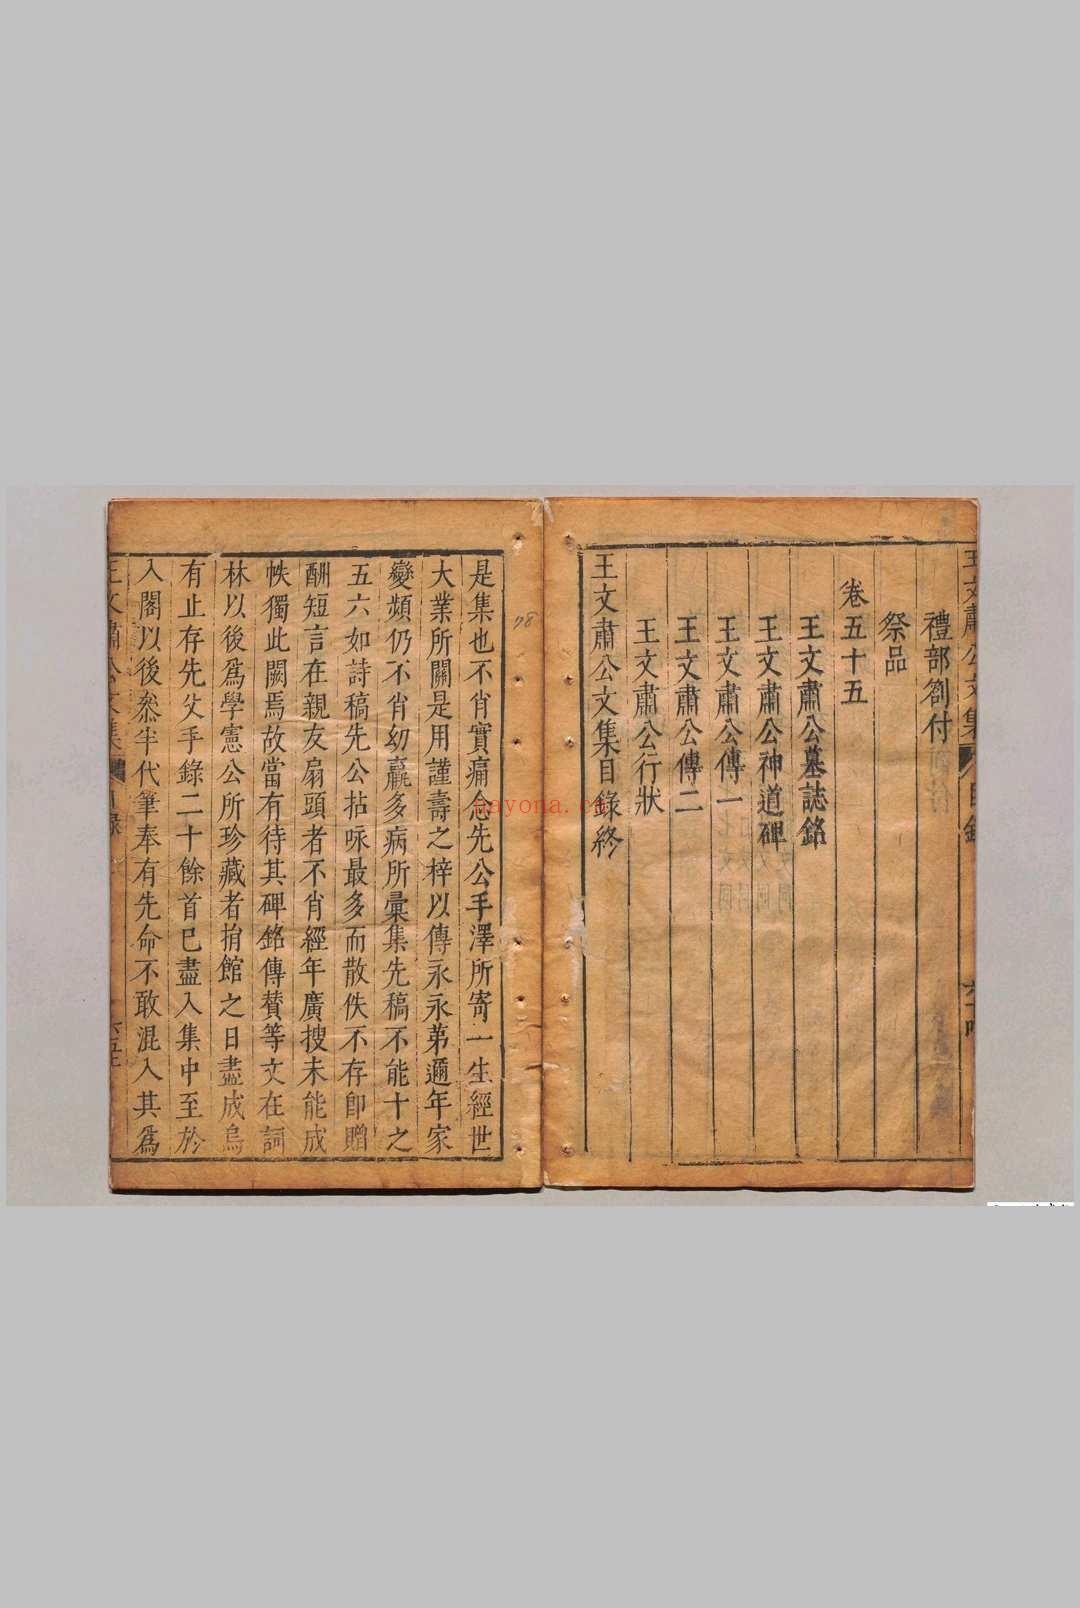 禮部劄付
祭品
卷五十五
王文肅公墓誌銘
王文肅公神道碑
王文肅公傳一
王文肅公傳二
王文肅公行狀
王文肅公文集目錄終
是集也不肖實痛念先公手澤所寄一生經世
大業所關是用謹壽之梓以傳永永第邇年家
變頻仍不肖幼羸多病所彙集先稿不能十之
五六如詩稿先公拈咏最多而散佚不存卽贈
酬短言在親友扇頭者不肖經年廣搜未能成
帙獨此闕焉故當有待其碑銘傳贊等文在詞
林以後爲學憲公所珍藏者捐館之日盡成烏
有止存先父手錄二十餘首已盡入集中至於
入閣以後叅半代筆奉有先命不敢混入其爲
王文肅公文集
目錄